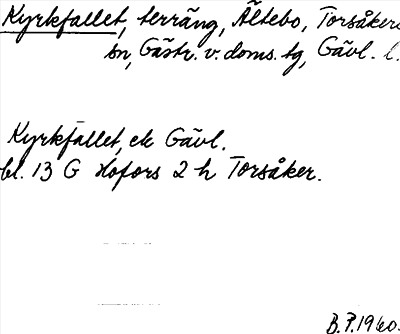 Kyrkfallet, terräng, Ältebo, Torsåkers
sn, Gästr. v. doms. tg, Gävl. l.
Kyrkfallet, ek Gävl.
bl. 13 G Hofors 2 h Torsåker.
B.P. 1960.